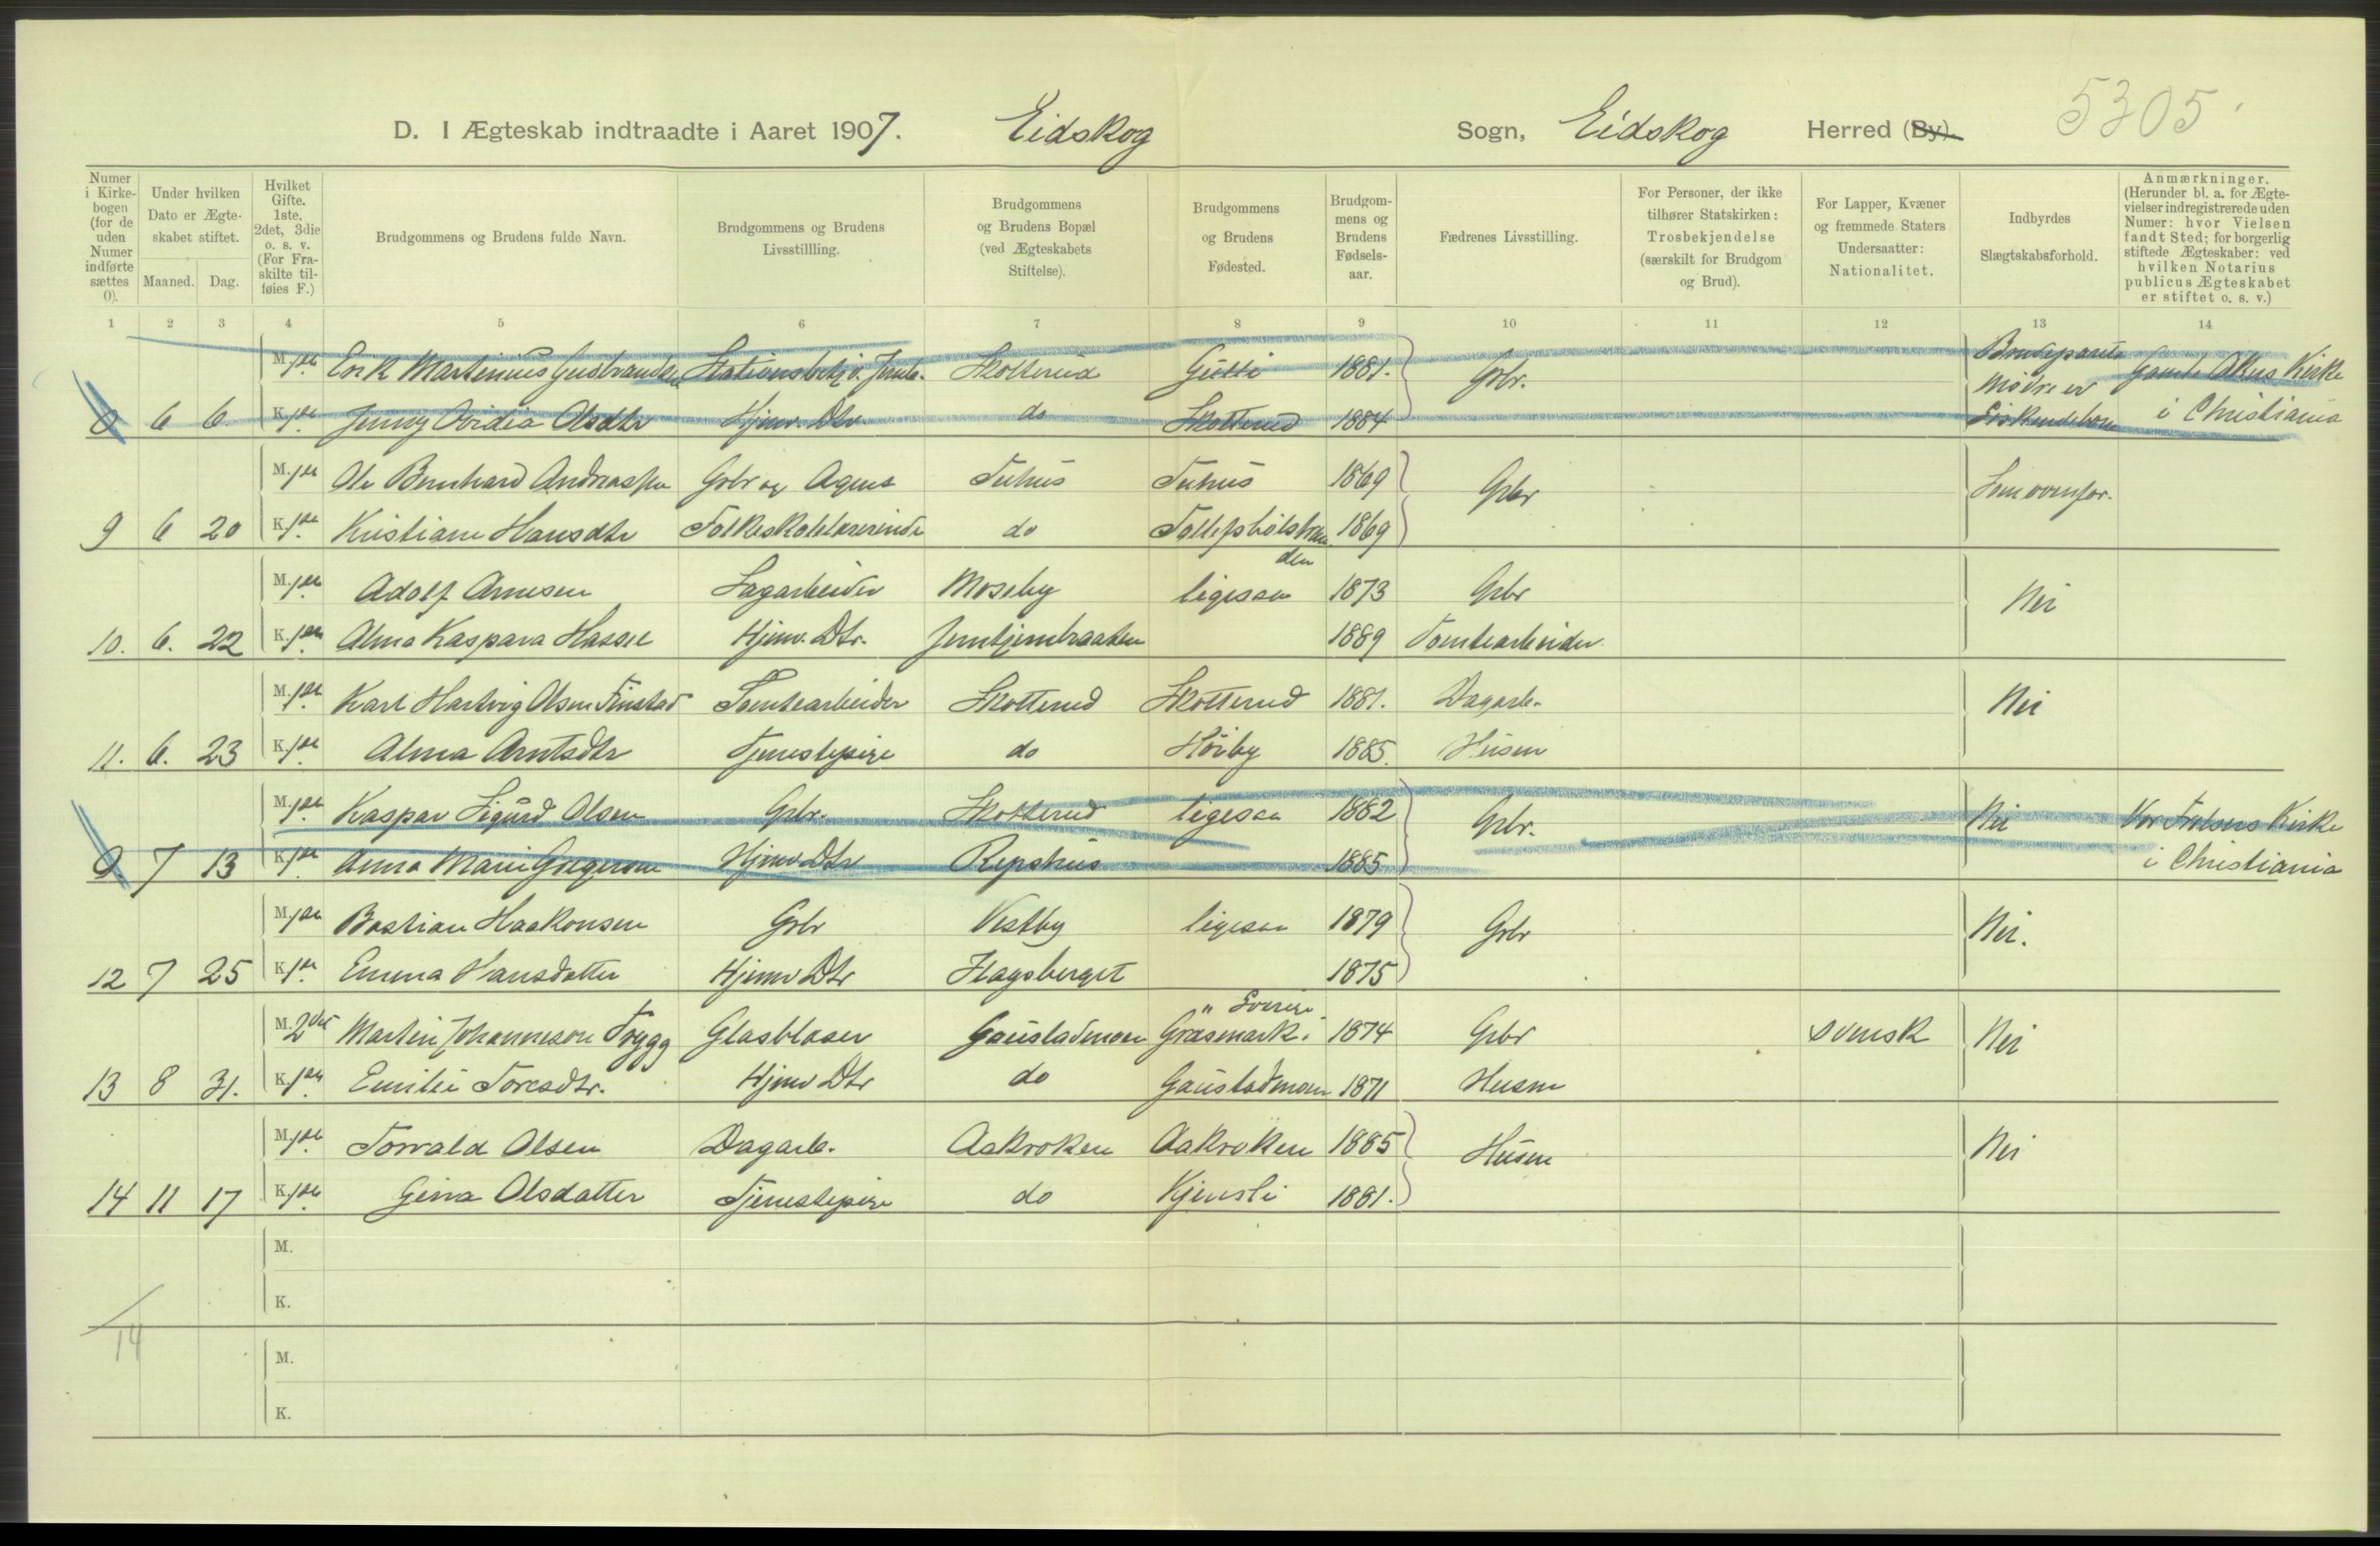 5305
D. I Ægteskab indtraadte i Aaret 1907. Eidskog Sogn, Eidskog Herred (By).
Numer i Kirkebogen (for de uden Numer indførte sættes 0).
Under hvilken Dato er Ægteskabet stiftet.
Maaned. Dag.
Hvilket Gifte. 1ste, 2det, 3die o. s. v. (For Fraskilte tilføies F.)
Brudgommens og Brudens fulde Navn.
Brudgommens og Brudens Livsstillling.
Brudgommens og Brudens Bopæl (ved Ægteskabets Stiftelse).
Brudgommens og Brudens Fødested.
Brudgommens og Brudens Fødselsaar.
Fædrenes Livsstilling.
For Personer, der ikke tilhører Statskirken: Trosbekjendelse (særskilt for Brudgom og Brud).
For Lapper, Kvæner og fremmede Staters Undersaatter: Nationalitet.
Indbyrdes Slægtskabsforhold.
Anmærkninger. (Herunder bl. a. for Ægtevielser indregistrerede uden Numer: hvor Vielsen fandt Sted; for borgerlig stiftede Ægteskaber: ved hvilken Notarius publicus Ægteskabet er stiftet o. s. v.)
1 2 3 4 5 6 7 8 9 10 11 12 13 14
M. 1ste Erik Martinius Gudbrandsen Skotterud 1881. Grbr. Brudeparets Gamle Akers Kirke
mødre er
0 6 6 K. 1ste Jenny Olsdtr Hjemv. Dtr. do Skotterud 1884 Søskendebørn i Christiania
M. 1ste Ole Bernhard Andreassen Grbr og Agent 1869 Grbr Som ovenfor.
9 6 20 K. 1ste Kristiane Hansdtr Folkeskolelærerinde do 1869
M. 1ste Adolf Arnesen Sagarbeider Moseby ligesaa 1873 Grbr Nei
10. 6. 22 K. 1ste Alma Kaspara Hassel Hjemv. Dtr. 1889 Tomtearbeider.
M. 1ste Karl Hartvig Olsen Finstad Tomtearbeider Skotterud Skotterud 1881. Dagarb. Nei
11. 6. 23 K. 1ste Alma Arntsdtr Tjenestepige do Høiby 1885. Husm
M. 1ste Kaspar Sigurd Olsen Grbr. Skotterud ligesaa 1882 Grbr. Nei Vor Frelsers Kirke
0 7 13 K. 1ste Anna Marie Gregersen Hjemv Dtr Repshus 1885 i Christiania
M. 1ste Bastian Haakonsen Grbr Vestby ligesaa 1879 Grbr Nei.
12 7 25 K. 1ste Emma Hansdatter Hjemv Dtr Hagsberget 1875
Sverige
M. 2det Martin Johanneson Trygg Glasblaser Gaustadmoen Græsmark i 1874 Grbr svensk Nei
13 8 31. K. 1ste Emilie Toresdtr. Hjemv Dtr do Gaustadmoen 1871 Husm
M. 1ste Torvald Olsen Dagarb. Aakroken Aakroken 1885 Husm Nei
14 11 17 K. 1ste Gina Olsdatter Tjenestepige do Kjensli 1881.
M.
K.
14
M.
K.